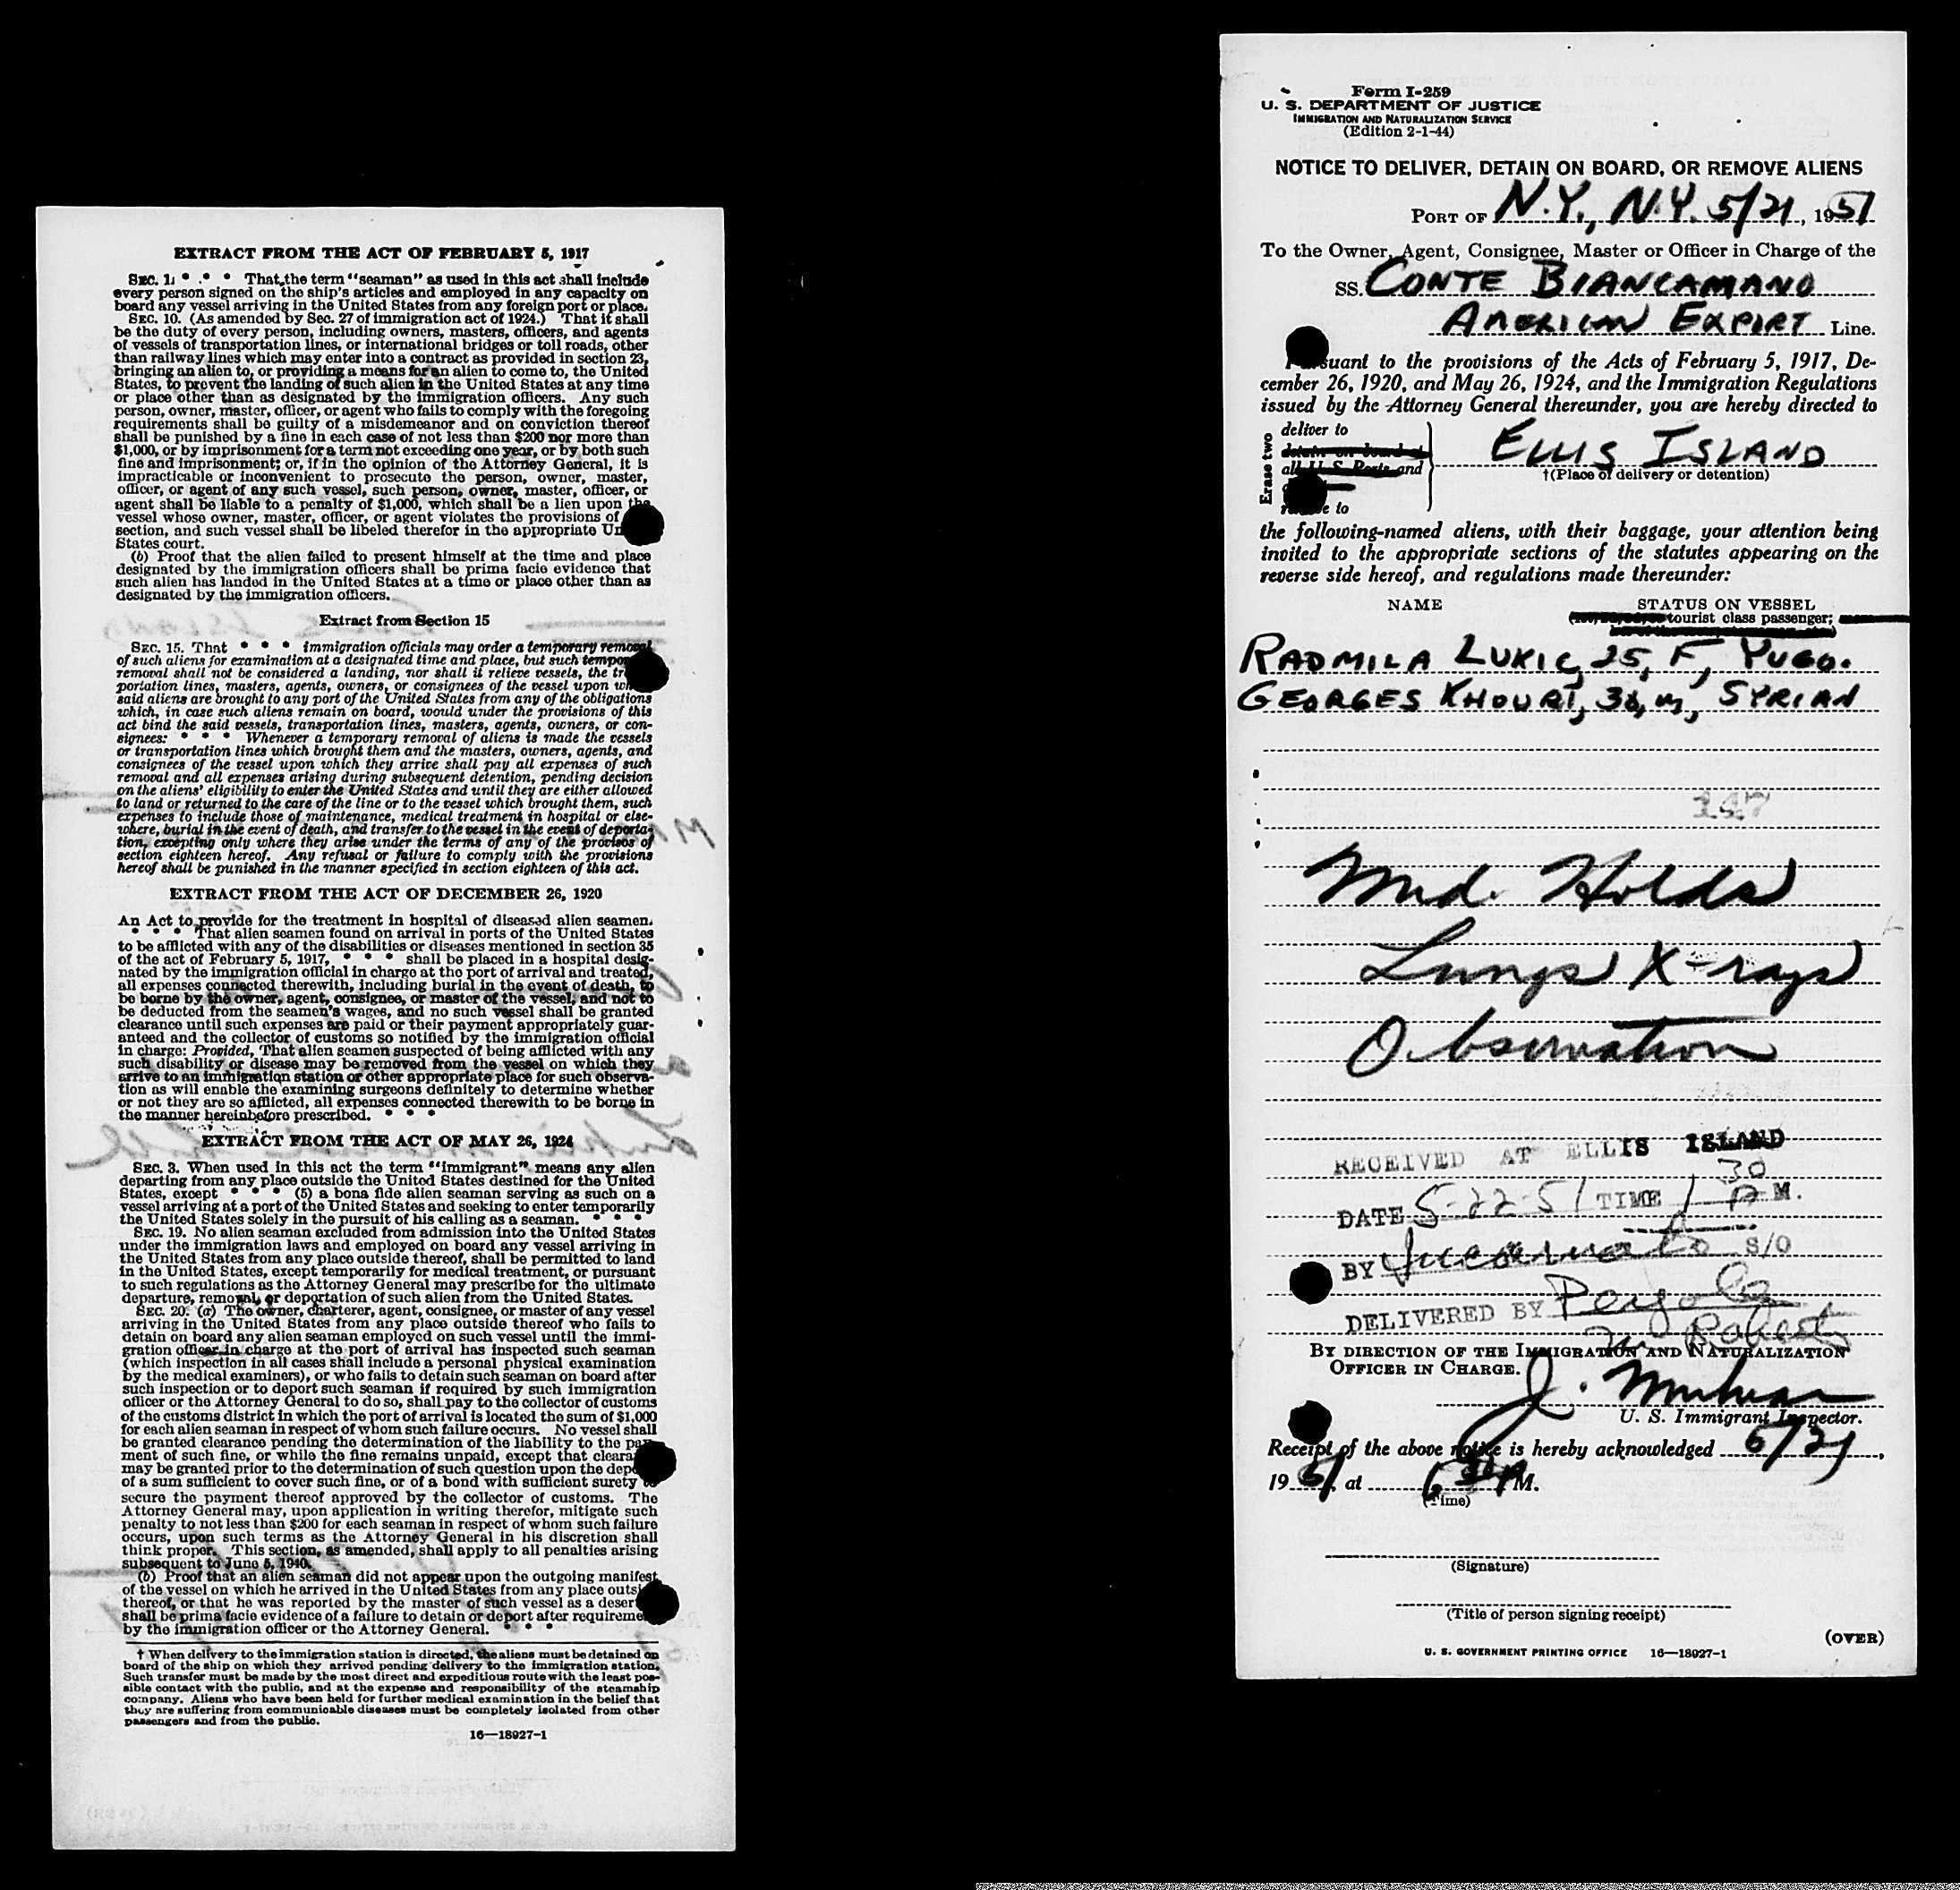 EXTRACT FROM THE ACT OF FEBRUARY 5, 1917
SEC. 1. * * * That the term "seaman" as used in this act shall include
every person signed on the ship's articles and employed in any capacity on
board any vessel arriving in the United States from any foreign port or place.
SEC. 10. (As amended by Sec. 27 of immigration act of 1924.) That it shall
be the duty of every person, including owners, masters, officers, and agents
of vessels of transportation lines, or international bridges or toll roads, other
than railway lines which may enter into a contract as provided in section 23,
bringing an alien to, or providing a means for an alien to come to, the United
States, to prevent the landing of such alien in the United States at any time
or place other than as designated by the immigration officers. Any such
person, owner, master, officer, or agent who fails to comply with the foregoing
requirements shall be guilty of a misdemeanor and on conviction thereof
shall be punished by a fine in each case of not less than $200 nor more than
$1,000, or by imprisonment for a term not exceeding one year, or by both such
fine and imprisonment; or, if in the opinion of the Attorney General, it is
impracticable or inconvenient to prosecute the person, owner, master,
officer, or agent of any such vessel, such person, owner, master, officer, or
agent shall be liable to a penalty of $1,000, which shall be a lien upon the
vessel whose owner, master, officer, or agent violates the provisions of
section, and such vessel shall be libeled therefor in the appropriate Un
States court.
(b) Proof that the alien failed to present himself at the time and place
designated by the immigration officers shall be prima facie evidence that
such alien has landed in the United States at a time or place other than as
designated by the immigration officers.
Extract from Section 15
SEC. 15. That * * * immigration officials may order a temporary removal
of such aliens for examination at a designated time and place, but such tempor
removal shall not be considered a landing, nor shall it relieve vessels, the tr
portation lines, masters, agents, owners, or consignees of the vessel upon wh
said aliens are brought to any port of the United States from any of the obligations
which, in case such aliens remain on board, would under the provisions of this
act bind the said vessels, transportation lines, masters, agents, owners, or con-
signees: * * * Whenever a temporary removal of aliens is made the vessels
or transportation lines which brought them and the masters, owners, agents, and
consignees of the vessel upon which they arrive shall pay all expenses of such
removal and all expenses arising during subsequent detention, pending decision
on the aliens' eligibility to enter the United States and until they are either allowed
to land or returned to the care of the line or to the vessel which brought them, such
expenses to include those of maintenance, medical treatment in hospital or else-
where, burial in the event of death, and transfer to the vessel in the event of deporta-
tion, excepting only where they arise under the terms of any of the provisos of
section eighteen hereof. Any refusal or failure to comply with the provisions
hereof shall be punished in the manner specified in section eighteen of this act.
EXTRACT FROM THE ACT OF DECEMBER 26, 1920
An Act to provide for the treatment in hospital of diseased alien seamen.
* * * That alien seamen found on arrival in ports of the United States
to be afflicted with any of the disabilities or diseases mentioned in section 35
of the act of February 5, 1917, * * * shall be placed in a hospital desig-
nated by the immigration official in charge at the port of arrival and treated,
all expenses connected therewith, including burial in the event of death, to
be borne by the owner, agent, consignee, or master of the vessel, and not to
be deducted from the seamen's wages, and no such vessel shall be granted
clearance until such expenses are paid or their payment appropriately guar-
anteed and the collector of customs so notified by the immigration official
in charge: Provided, That alien seamen suspected of being afflicted with any
such disability or disease may be removed from the vessel on which they
arrive to an immigration station or other appropriate place for such observa-
tion as will enable the examining surgeons definitely to determine whether
or not they are so afflicted, all expenses connected therewith to be borne in
the manner hereinbefore prescribed. * * *
EXTRACT FROM THE ACT OF MAY 26, 1924
SEC. 3. When used in this act the term "immigrant" means any alien
departing from any place outside the United States destined for the United
States, except * * * (5) a bona fide alien seaman serving as such on a
vessel arriving at a port of the United States and seeking to enter temporarily
the United States solely in the pursuit of his calling as a seaman. * * *
SEC. 19. No alien seaman excluded from admission into the United States
under the immigration laws and employed on board any vessel arriving in
the United States from any place outside thereof, shall be permitted to land
in the United States, except temporarily for medical treatment, or pursuant
to such regulations as the Attorney General may prescribe for the ultimate
departure, removal, or deportation of such alien from the United States.
SEC. 20. (a) The owner, charterer, agent, consignee, or master of any vessel
arriving in the United States from any place outside thereof who fails to
detain on board any alien seaman employed on such vessel until the immi-
gration officer in charge at the port of arrival has inspected such seaman
(which inspection in all cases shall include a personal physical examination
by the medical examiners), or who fails to detain such seaman on board after
such inspection or to deport such seaman if required by such immigration
officer or the Attorney General to do so, shall pay to the collector of customs
of the customs district in which the port of arrival is located the sum of $1,000
for each alien seaman in respect of whom such failure occurs. No vessel shall
be granted clearance pending the determination of the liability to the pay-
ment of such fine, or while the fine remains unpaid, except that cleara
may be granted prior to the determination of such question upon the depo
of a sum sufficient to cover such fine, or of a bond with sufficient surety to
secure the payment thereof approved by the collector of customs. The
Attorney General may, upon application in writing therefor, mitigate such
penalty to not less than $200 for each seaman in respect of whom such failure
occurs, upon such terms as the Attorney General in his discretion shall
think proper. This section, as amended, shall apply to all penalties arising
subsequent to June 5, 1940.
(b) Proof that an alien seaman did not appear upon the outgoing manifest
of the vessel on which he arrived in the United States from any place outsi
thereof, or that he was reported by the master of such vessel as a deser
shall be prima facie evidence of a failure to detain or deport after requireme
by the immigration officer or the Attorney General. * * *
† When delivery to the immigration station is directed, the aliens must be detained on
board of the ship on which they arrived pending delivery to the immigration station.
Such transfer must be made by the most direct and expeditious route with the least pos-
sible contact with the public, and at the expense and responsibility of the steamship
company. Aliens who have been held for further medical examination in the belief that
they are suffering from communicable diseases must be completely isolated from other
passengers and from the public.
16—18927-1
Form I-259
U. S. DEPARTMENT OF JUSTICE
IMMIGRATION AND NATURALIZATION SERVICE
(Edition 2-1-44)
NOTICE TO DELIVER, DETAIN ON BOARD, OR REMOVE ALIENS
PORT OF N.Y., N.Y. 5/21, 1951
To the Owner, Agent, Consignee, Master or Officer in Charge of the
SS. CONTE BIANCAMANO
AMERICAN EXPORT Line.
Pursuant to the provisions of the Acts of February 5, 1917, De-
cember 26, 1920, and May 26, 1924, and the Immigration Regulations
issued by the Attorney General thereunder, you are hereby directed to
Erase two
deliver to
detain on board at
all U. S. Ports and
ELLIS ISLAND
†(Place of delivery or detention)
e to
the following-named aliens, with their baggage, your attention being
invited to the appropriate sections of the statutes appearing on the
reverse side hereof, and regulations made thereunder:
NAME STATUS ON VESSEL
tourist class passenger;
RADMILA LUKIC, 25, F, YUGO.
GEORGES KHOURI, 30, M, SYRIAN
147
Med. Holds
Lungs X-rays
Observation
RECEIVED AT ELLIS ISLAND
DATE 5-22-51 TIME 1 30 P M.
BY S/O
DELIVERED BY
BY DIRECTION OF THE IMMIGRATION AND NATURALIZATION
OFFICER IN CHARGE.
J.
U. S. Immigrant Inspector.
Receipt of the above notice is hereby acknowledged 5/21,
1951, at 6 PM.
(Time)
(Signature)
(Title of person signing receipt)
(OVER)
U. S. GOVERNMENT PRINTING OFFICE 16—18927-1